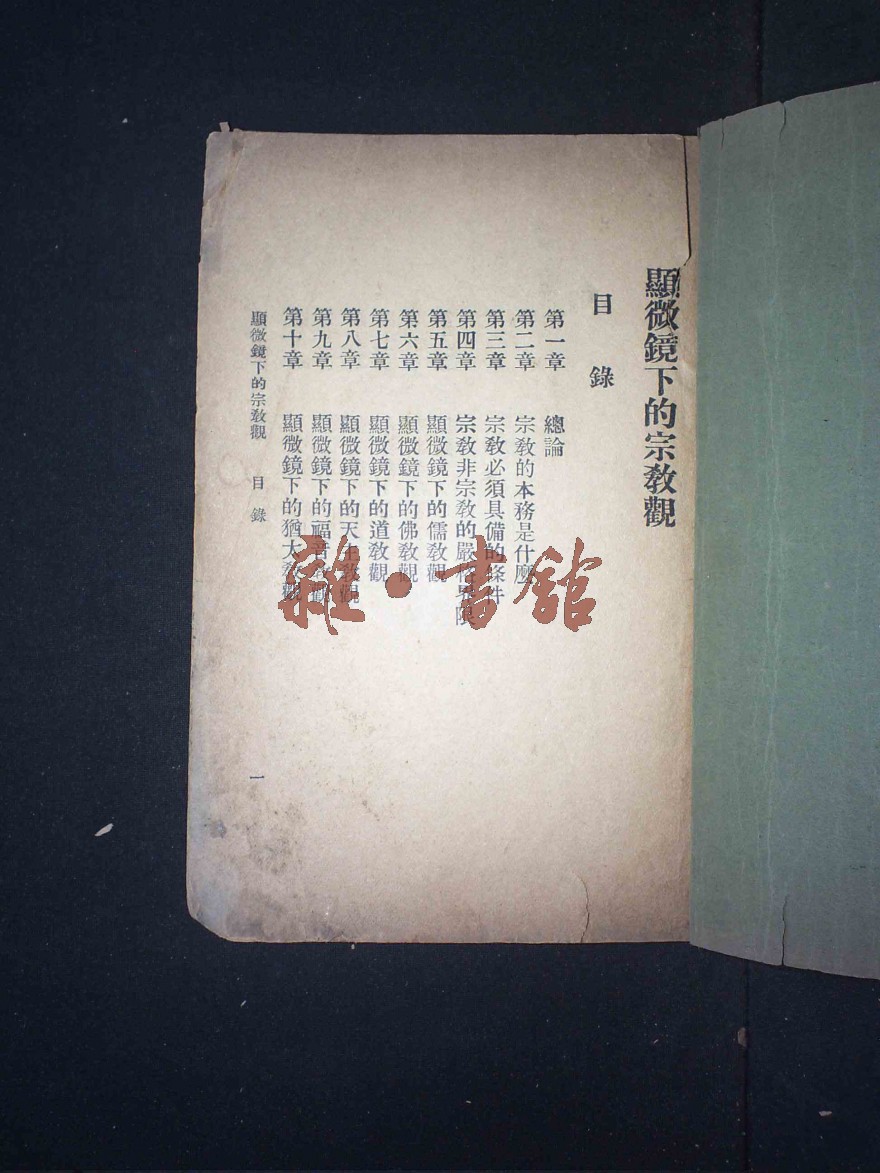 顯微鏡下的宗教觀
目錄
第一章 總論
第二章 宗教的本務是什麼
第三章 宗教必須具備的條件
第四章 宗教非宗教的嚴格界限
第五章 顯微鏡下的儒教觀
第六章 顯微鏡下的佛教觀
第七章 顯微鏡下的道教觀
第八章 顯微鏡下的天主教觀
第九章 顯微鏡下的福音教觀
第十章 顯微鏡下的猶太教觀
顯微鏡下的宗教觀 目錄
一
雜·書館